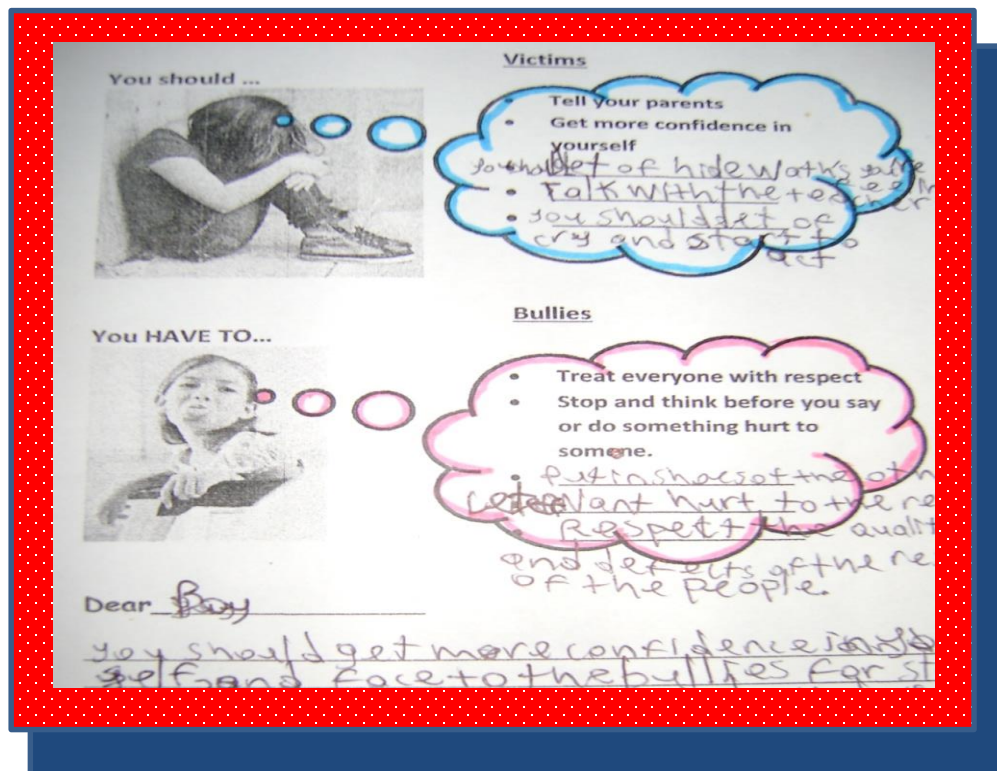 Victims
You should ...
Tell your parents
Get more confidence in
yourself
of hide
Talk with the teacher
you should of
cry and start to
act
Bullies
You HAVE TO...
Treat everyone with respect
Stop and think before you say
or do something hurt to
someone.
Put in of the oth
want hurt to the re
Respect the qualit
and defects of the re
of the people.
Dear Boy
you should get more confidence in
self and face to the bullies for st